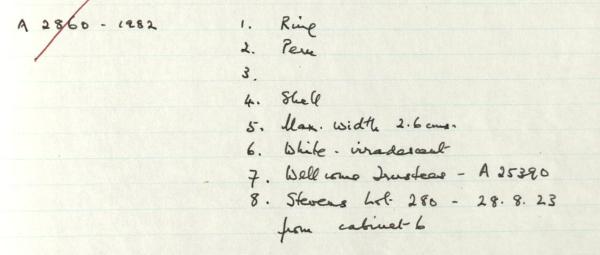 A 2860 - 1982 1. Ring
2. Peru
3.
4. Shell
5. Max. width 2.6 cms.
6. White - irradescent
7. Wellcome Trustees - A 25390
8. Stevens Lot. 280 - 28.8.23
from cabinet 6